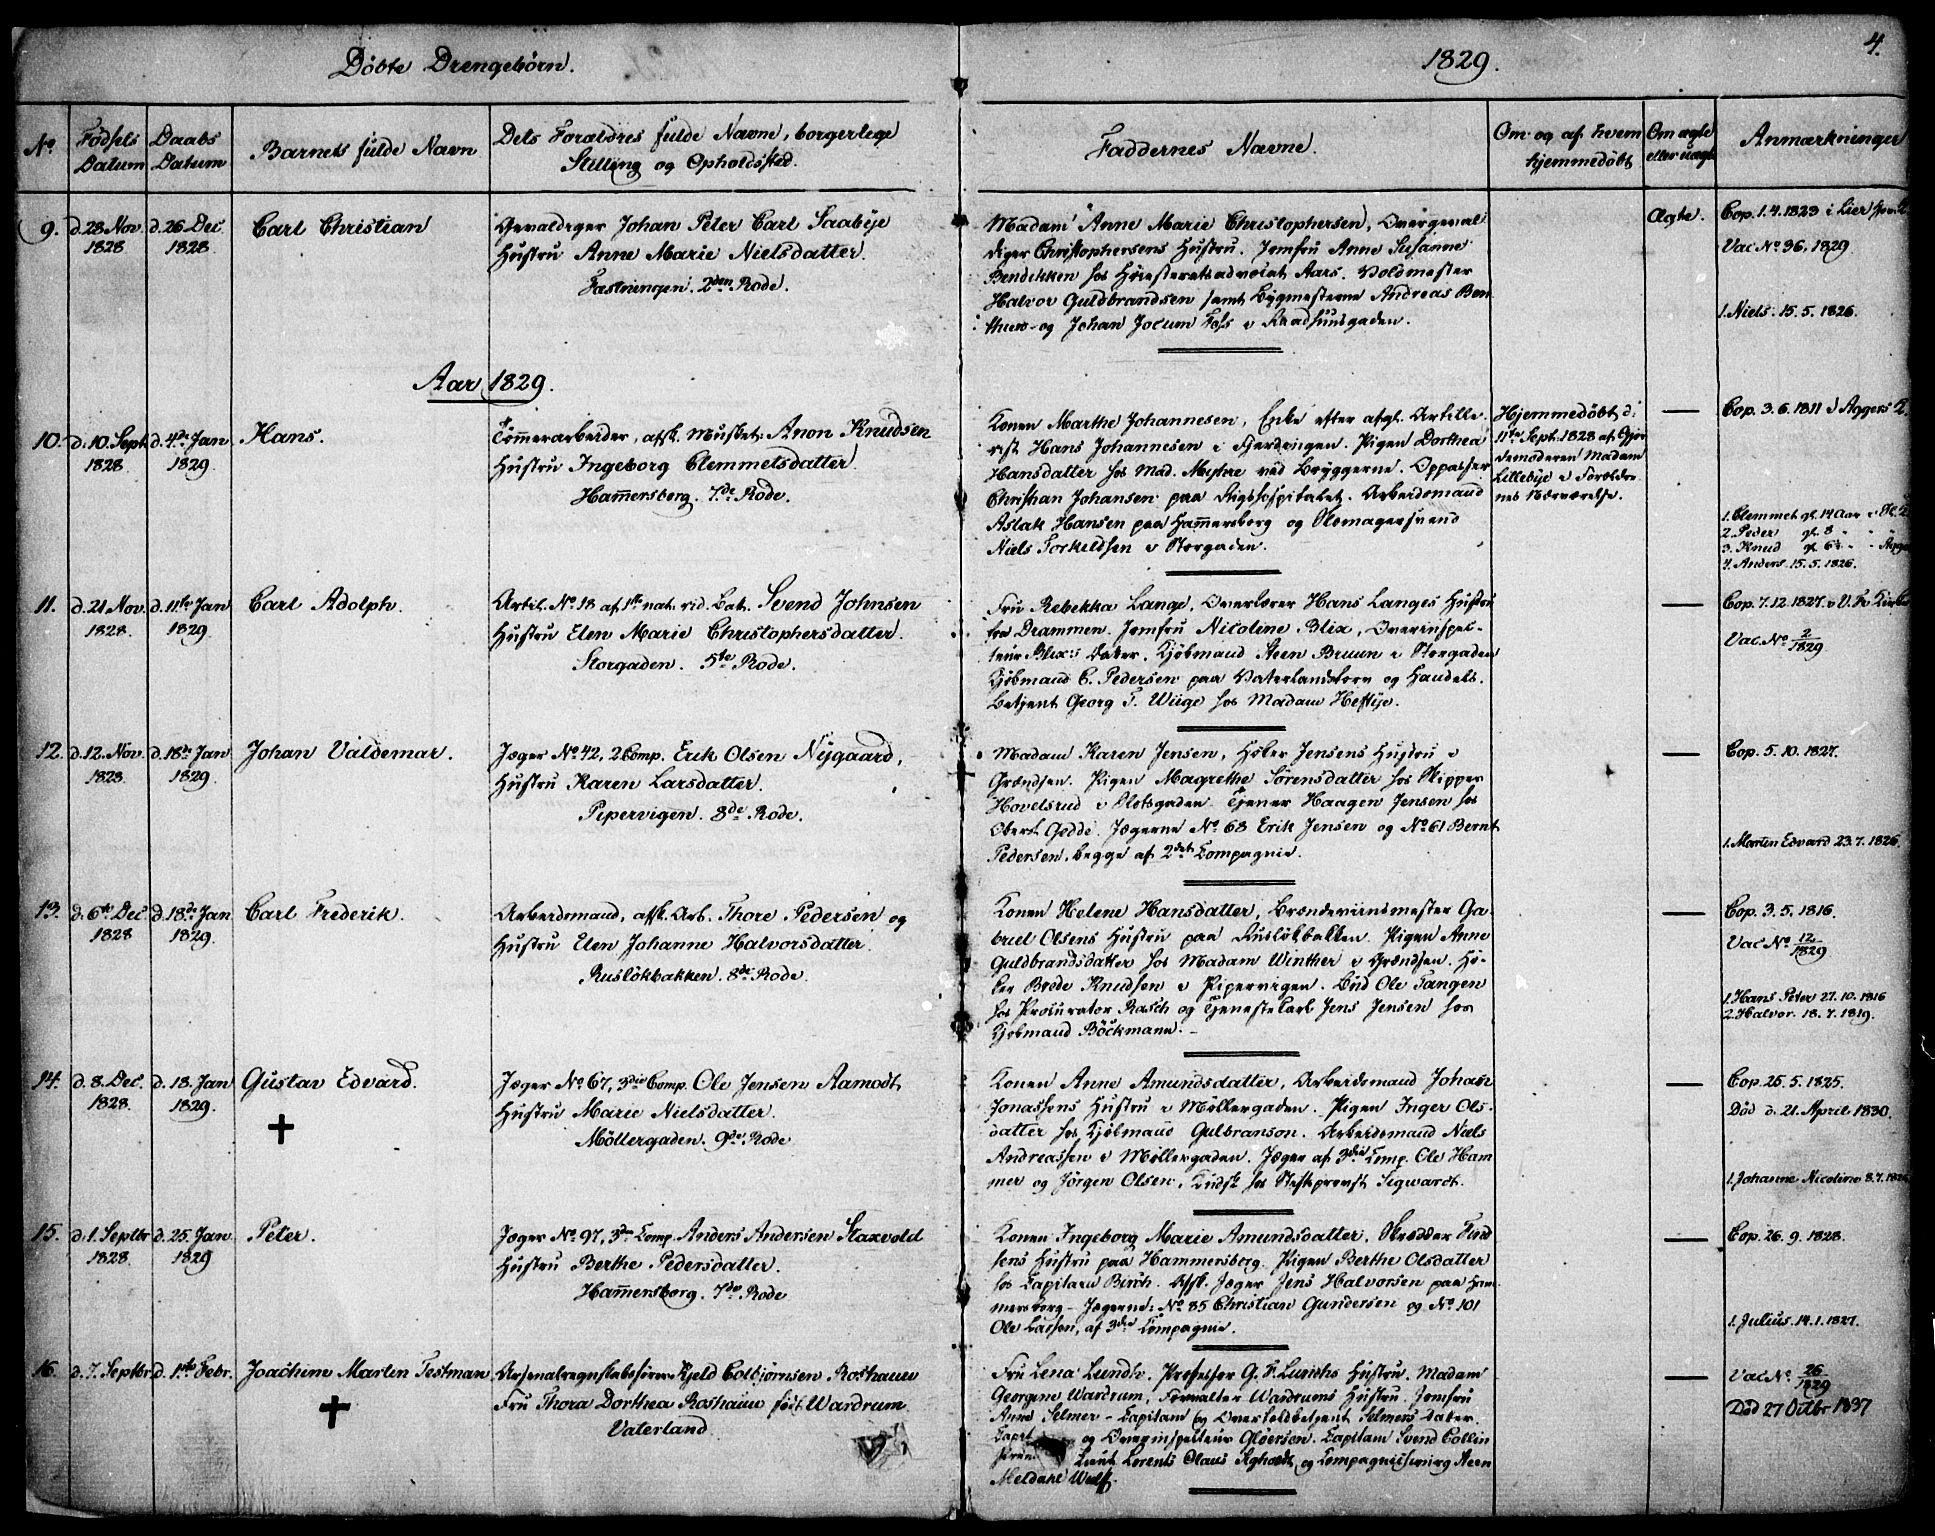 Döbte Drengebörn.
1829.
4.
No
Fødsels Datum
Daabs Datum
Barnets fulde Navn
Dets Forældres fulde Navne, borgerlege
Stilling og Opholdssted.
Faddernes Navne.
Om og af hvem hjemmedöbt
Om ægte eller uægte
Anmærkninger
9.
d. 28 Nov. 1828
d. 26 Dec. 1828
Carl Christian
Gevaldiger Johan Peter Carl Saabÿe
Hustru Anne Marie Nielsdatter.
Fæstningen. 2den Rode.
Madam Anne Marie Christophersen, Overgeval-
diger Christophersens Hustru. Jomfru Anne Susanne
Bendikken hos Høiesteretsadvocat Aars. Voldmester
Halvor Guldbrandsen samt Bygmesterne Andreas Ben
thun og Johan Jocum Foss i Raadhuusgaden.
Ægte.
Cop. 1.4.1823 i Lier
Vac No 36, 1829.
1. Niels. 15.5.1826.
Aar 1829.
10.
d. 10. Sept. 1828
d. 4de Jan 1829
Hans.
Tömerarbeider, afsk. Musket. Anon Knudsen
Hustru Ingeborg Clemmetsdatter.
Hamersborg. 7de Rode.
Konen Marthe Johannesen, Enke efter afgl. Artille-
rist Hans Johannesen i Fjerdingen. Pigen Dorthea
Hansdatter hos Mad. Myhre ved Bryggerne. Oppasser
Christian Johansen paa Rigshospitalet. Arbeidsmand
Aslak Hansen paa Hamersborg og Skomagersvend
Niels Torkeldsen i Storgaden.
Hjemmedöbt d.
11te Sept. 1828 af Gjor
demoderen Madam
Lillebye i Foreldre
nes Nærværelse.
Cop. 3.6.1811 i Aggers K.
1. Clemmet gl. 14 Aar
2. Peder gl. 8 " "
3. Knud gl. 6½ " - Agge
4. Anders. 15.5.1826.
11.
d. 21 Nov. 1828
d. 11te Jan 1829
Carl Adolph.
Artil. No. 18 af 1ste nat. rid. Bat. Svend Johnsen
Hustru Elen Marie Christophersdatter.
Storgaden. 5te Rode.
Fru Rebekka Lange, Overlærer Hans Langes Hustru
fra Drammen. Jomfru Nicoline Blix, Overinspek-
teur Blix's Datter. Kjöbmand Steen Bruun i Storgaden
Kjöbmand C. Pedersen paa Vaterlandstorv og Handels-
betjent Georg T. Wiige hos Madam Heftÿe.
Cop. 7.12.1827. i V. Fr Kirke
Vac. No 2/1829
12.
d. 12. Nov. 1828
d. 18de Jan 1829
Johan Valdemar.
Jæger No. 42, 2 Comp. Erik Olsen Nÿgaard,
Hustru Karen Larsdatter.
Pipervigen. 8de Rode.
Madam Karen Jensen, Höker Jensens Hustru i
Grændsen. Pigen Magrethe Sörensdatter hos Skipper
Hovelsrud i Slotsgaden. Tjener Haagen Jensen hos
Oberst Gedde. Jægerne No. 68 Erik Jensen og No. 61 Bernt
Pedersen, begge af 2det Compagnie.
Cop. 5.10.1827.
1. Marten Edvard 23.7.1826.
13.
d. 6te Dec 1828
d. 18de Jan 1829
Carl Frederik.
Arbeidsmand, afsk. Art. Thore Pedersen og
Hustru Elen Johanne Halvorsdatter.
Ruslökbakken. 8de Rode.
Konen Helene Hansdatter, Brændeviinsmester Ga-
briel Olsens Hustru paa Ruslökbakken. Pigen Anne
Guldbrandsdatter hos Madam Winther i Grændsen. Hö-
ker Brede Knudsen i Pipervigen. Bud Ole Tangen
hos Procurator Rasch og Tjenestekarl Jens Jensen hos
Kjöbmand Böckmann.
Cop. 3.5.1816.
Vac No 12/1829
1. Hans Peter 27.10.1816
2. Halvor. 18.7.1819.
14.
d. 8. Dec. 1828.
d. 18. Jan 1829.
Gustav Edvard.
Jæger No. 67, 3die Comp. Ole Jensen Aamodt,
Hustru Marie Nielsdatter.
Möllergaden. 9de. Rode
Konen Anne Amundsdatter, Arbeidsmand Johan
Jonassens Hustru i Möllergaden. Pigen Inger Ols-
datter hos Kjöbmand Gulbranson. Arbeidsmand Niels
Andreassen i Möllergaden. Jæger af 3die Comp. Ole Ham
mer og Jörgen Olsen, Kudsk hos Stiftsprovst Sigwardt.
Cop. 25.5.1825.
Död d. 21. April 1830.
1. Johanne Nicoline 8.7.1826
15.
d. 1. Septbr 1828.
d. 25. Jan 1829
Peter.
Jæger No. 97, 3die Comp. Anders Andersen Staxvold
Hustru Berthe Pedersdatter.
Hamersborg. 7de. Rode
Konen Ingeborg Marie Amundsdatter, Skrædder Find
sens Hustru paa Hammersberg. Pigen Berthe Olsdatter
hos Capitain Birch. Afsk. Jæger Jens Halvorsen paa Ham
mersborg - Jægerne: No. 85 Christian Gundersen og No 101
Ole Larsen, af 3die Compagnie.
Cop. 26.9.1828.
1. Julius. 14.1.1827.
16.
d. 7. Septbr
d. 1ste Febr.
Joachim Marten Testman
Arsenalregnskabsfører Kjeld Colbjørnsen Roshauw
Fru Thora Dorthea Roshauw född Wardrum.
Vaterland
Fru Lena Lundh. Professor G. F. Lundhs Hustru. Madam
Georgine Wardrum, Forvalter Wardrums Hustru. Jomfru
Anne Selmer - Capitain og Overtoldbetjent Selmers Datter.
Capt og Overinspekteur Gløersen. Capitain Svend Collin
Lieut Lorents Olaus og Compagniechirurg Steen
Meldahl Wulf.
Vac No. 26/1829
Död 27 Octbr 1837